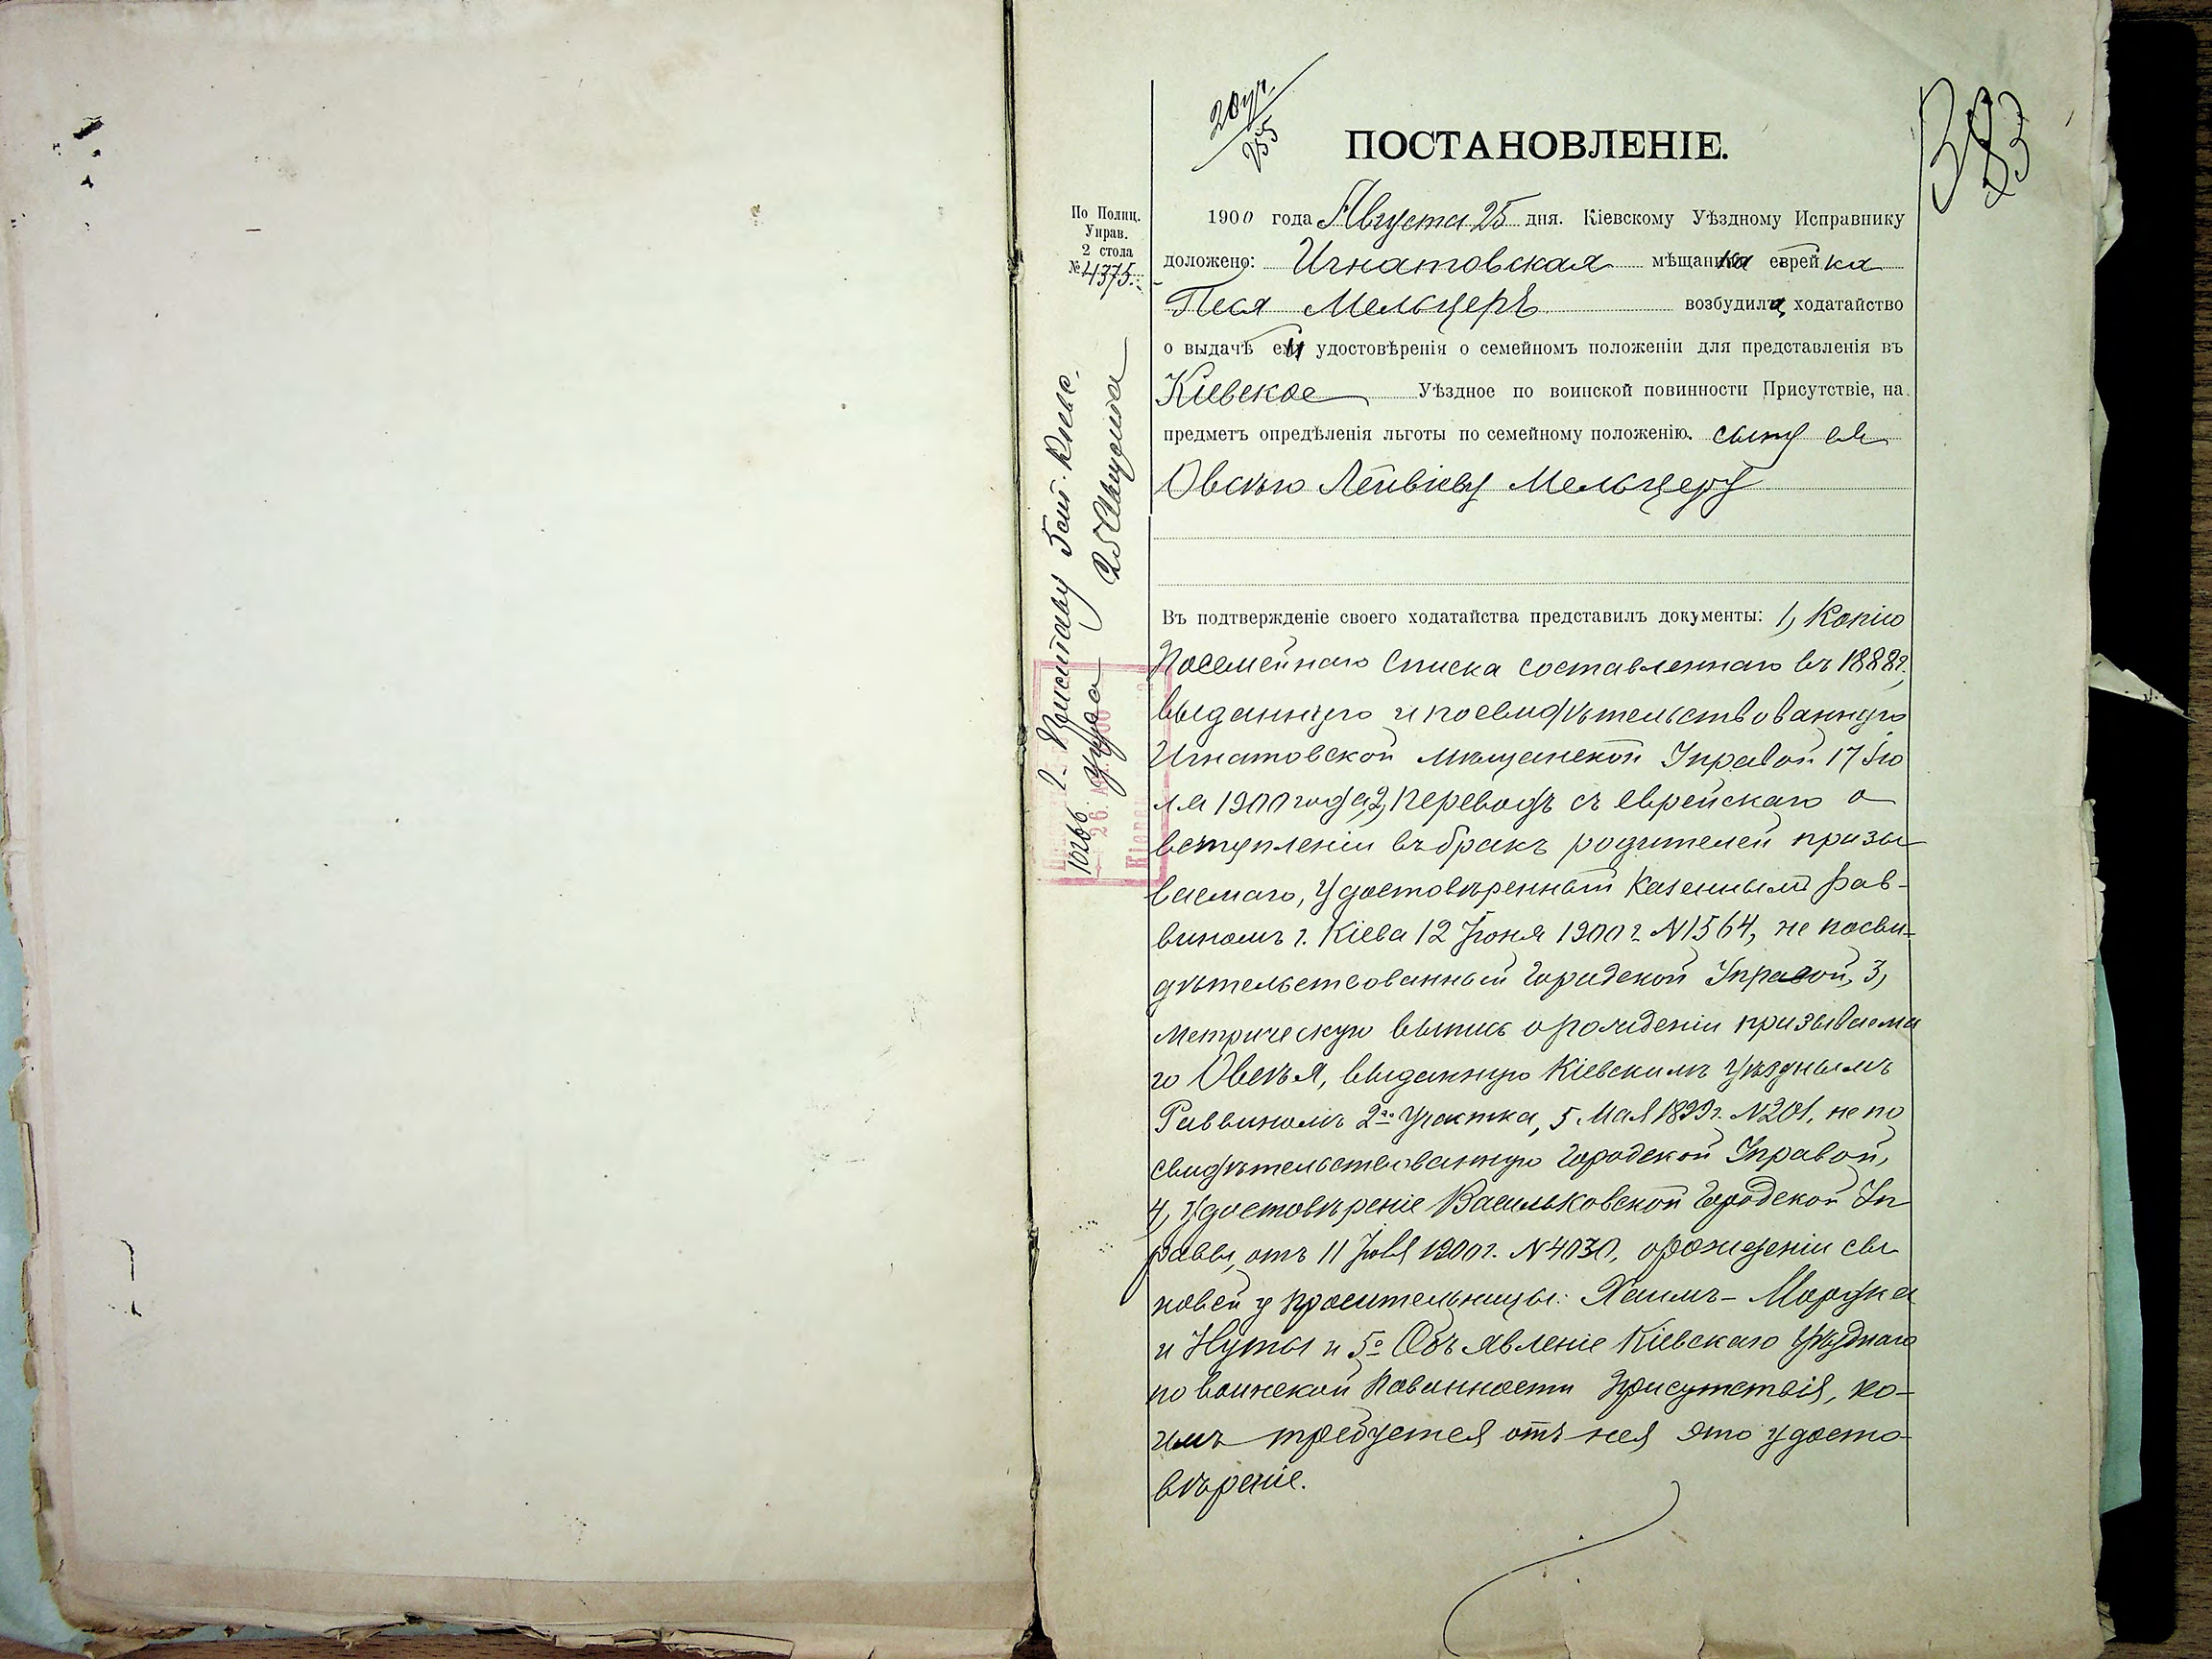 383
20 ур.
255
ПОСТАНОВЛЕНІЕ.
По Полиц.
Управ.
2 стола
№ 4375.
1900 года Августа 25 дня. Кіевскому Уѣздному Исправнику
доложено: Игнатовская мѣщанка еврейка
Песя Мельцеръ возбудила ходатайство
о выдачѣ ей удостовѣренія о семейномъ положеніи для представленія въ
Кіевское Уѣздное по воинской повинности Присутствіе, на
предметъ опредѣленія льготы по семейному положенію. сыну ея
Овсѣю Лейвіеву Мельцеру
Въ подтвержденіе своего ходатайства представилъ документы: 1, Копію
Посемейнаго Списка составленнаго въ 1888 г.
выданную и посвидѣтельствованную
Игнатовской мѣщанской Управой 17 Ію
ля 1900 года, 2, Переводъ съ еврейскаго о
вступленіи въ бракъ родителей призы
ваемаго, Удостовѣренный Казеннымъ Рав-
виномъ г. Кіева 12 Іюня 1900 г. N 1564, не посви-
дѣтельствованный Городской Управой, 3,
Метрическую выпись о рожденіи призываема
го Овсѣя, выданную Кіевскимъ Уѣзднымъ
Раввиномъ 2го Участка, 5 Мая 1899 г. N 201, не по
свидѣтельствованную Городской Управой,
4, Удостовѣреніе Васильковской Городской Уп
равы, отъ 11 1900 г. N 4030, о рожденіи сы
новей у просительницы: Хаимъ-Мордка
и Нуты и 5о Объявленіе Кіевскаго Уѣзднаго
по воинской Повинности Присутствія, ко-
имъ требуется отъ нея это удосто-
вѣреніе.
10266 Приставу 5 ст. Кіевс.
уѣзда 25 Августа
26